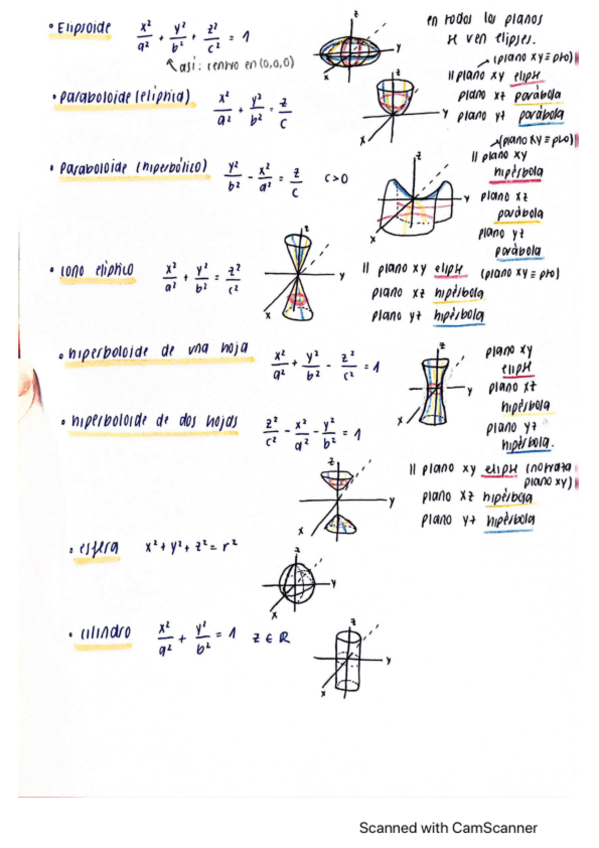 • Elipsoide x²/a² + y²/b² + z²/c² = 1
↖ así: centro en (0,0,0)
en todos los planos
se ven elipses.
z
y
x
• Paraboloide (elíptica) x²/a² + y²/b² = z/c
(plano xy ≡ pto)
|| plano xy elipse
plano xz parábola
plano yz parábola
z
y
x
• Paraboloide (hiperbólico) y²/b² - x²/a² = z/c c>0
(plano xy ≡ pto)
|| plano xy
hipérbola
plano xz
parábola
plano yz
parábola
z
y
x
• cono elíptico x²/a² + y²/b² = z²/c²
|| plano xy elipse (plano xy ≡ pto)
plano xz hipérbola
plano yz hipérbola
z
y
x
• hiperboloide de una hoja x²/a² + y²/b² - z²/c² = 1
plano xy
elipse
plano xz
hipérbola
plano yz
hipérbola.
z
y
x
• hiperboloide de dos hojas z²/c² - x²/a² - y²/b² = 1
|| plano xy elipse (no traza
plano xy)
plano xz hipérbola
plano yz hipérbola
z
y
x
• esfera x² + y² + z² = r²
z
y
x
• cilindro x²/a² + y²/b² = 1 z ∈ R
z
y
x
Scanned with CamScanner